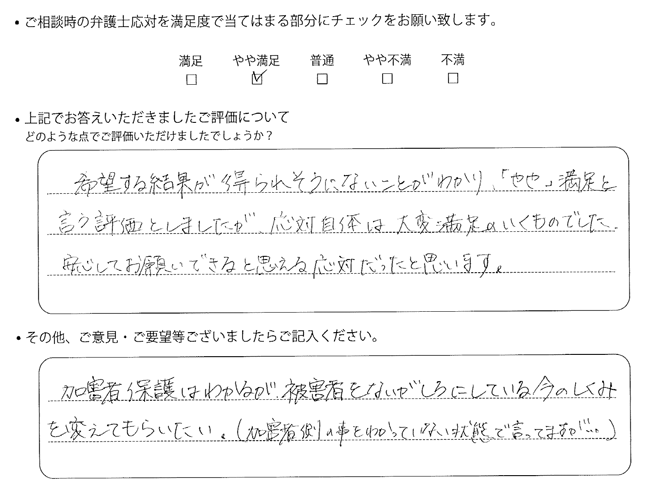 ・ご相談時の弁護士応対を満足度で当てはまる部分にチェックをお願い致します。
満足 やや満足 普通 やや不満 不満
□ ☑ □ □ □
・上記でお答えいただきましたご評価について
どのような点でご評価いただけましたでしょうか？
希望する結果が得られそうにないことがわかり、「やや」満足と
言う評価としましたが、応対自体は大変満足のいくものでした。
安心してお願いできると思える応対だったと思います。
・その他、ご意見・ご要望等ございましたらご記入ください。
加害者保護はわかるが、被害者をないがしろにしている今のしくみ
を変えてもらいたい。（加害者側の事をわかっていない状態で言ってますが…）